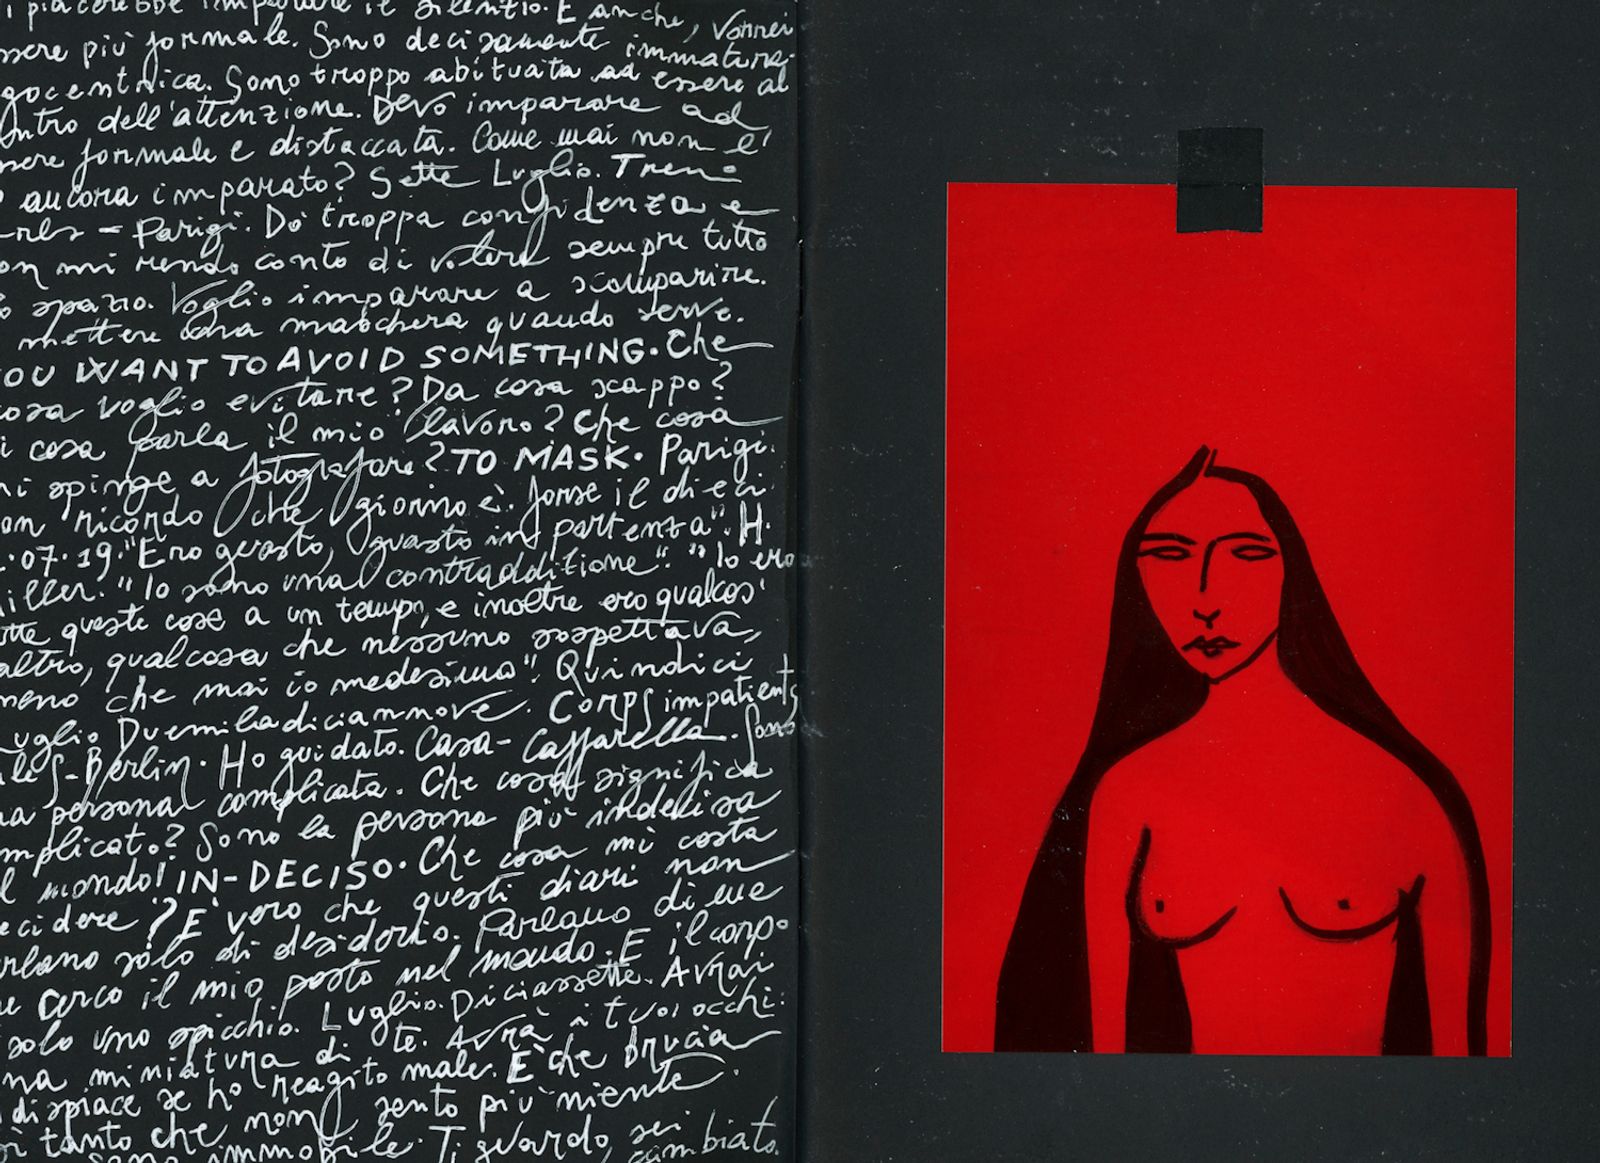 piacerebbe imparare il silenzio. E anche, vorrei
ssere più formale. Sono decisamente immatura,
gocentrica. Sono troppo abituata ad essere al
entro dell'attenzione. Devo imparare ad
ssere formale e distaccata. Come mai non e'
ancora imparato? Sette Luglio. Treno
Arles - Parigi. Do troppa confidenza e
on mi rendo conto di volere sempre tutto
o spazio. Voglio imparare a scomparire.
mettere una maschera quando serve.
YOU WANT TO AVOID SOMETHING. Che
cosa voglio evitare? Da cosa scappo?
i cosa parla il mio lavoro? Che cosa
mi spinge a fotografare? TO MASK. Parigi.
on ricordo che giorno è. Forse il dieci.
.07.19. "Ero guasto, guasto in partenza". H.
iller. "Io sono una contraddizione". "Io ero
tte queste cose a un tempo, e inoltre ero qualcos'
altro, qualcosa che nessuno sospettava,
meno che mai io medesimo". Quindici
Luglio Duemiladiciannove. Corps impatients
les-Berlin. Ho guidato. Casa-Caffarella. Sono
na persona complicata. Che cosa significa
mplicato? Sono la persona più indecisa
l mondo! IN-DECISO. Che cosa mi costa
ecidere? E' vero che questi diari non
rlano solo di desiderio. Parlano di me
e cerco il mio posto nel mondo. E il corpo
solo uno spicchio. Luglio. Diciassette. Avrai
na miniatura di te. Avrà i tuoi occhi.
dispiace se ho reagito male. E' che brucia
ì tanto che non sento più niente.
sono immobile. Ti guardo, sei cambiato.